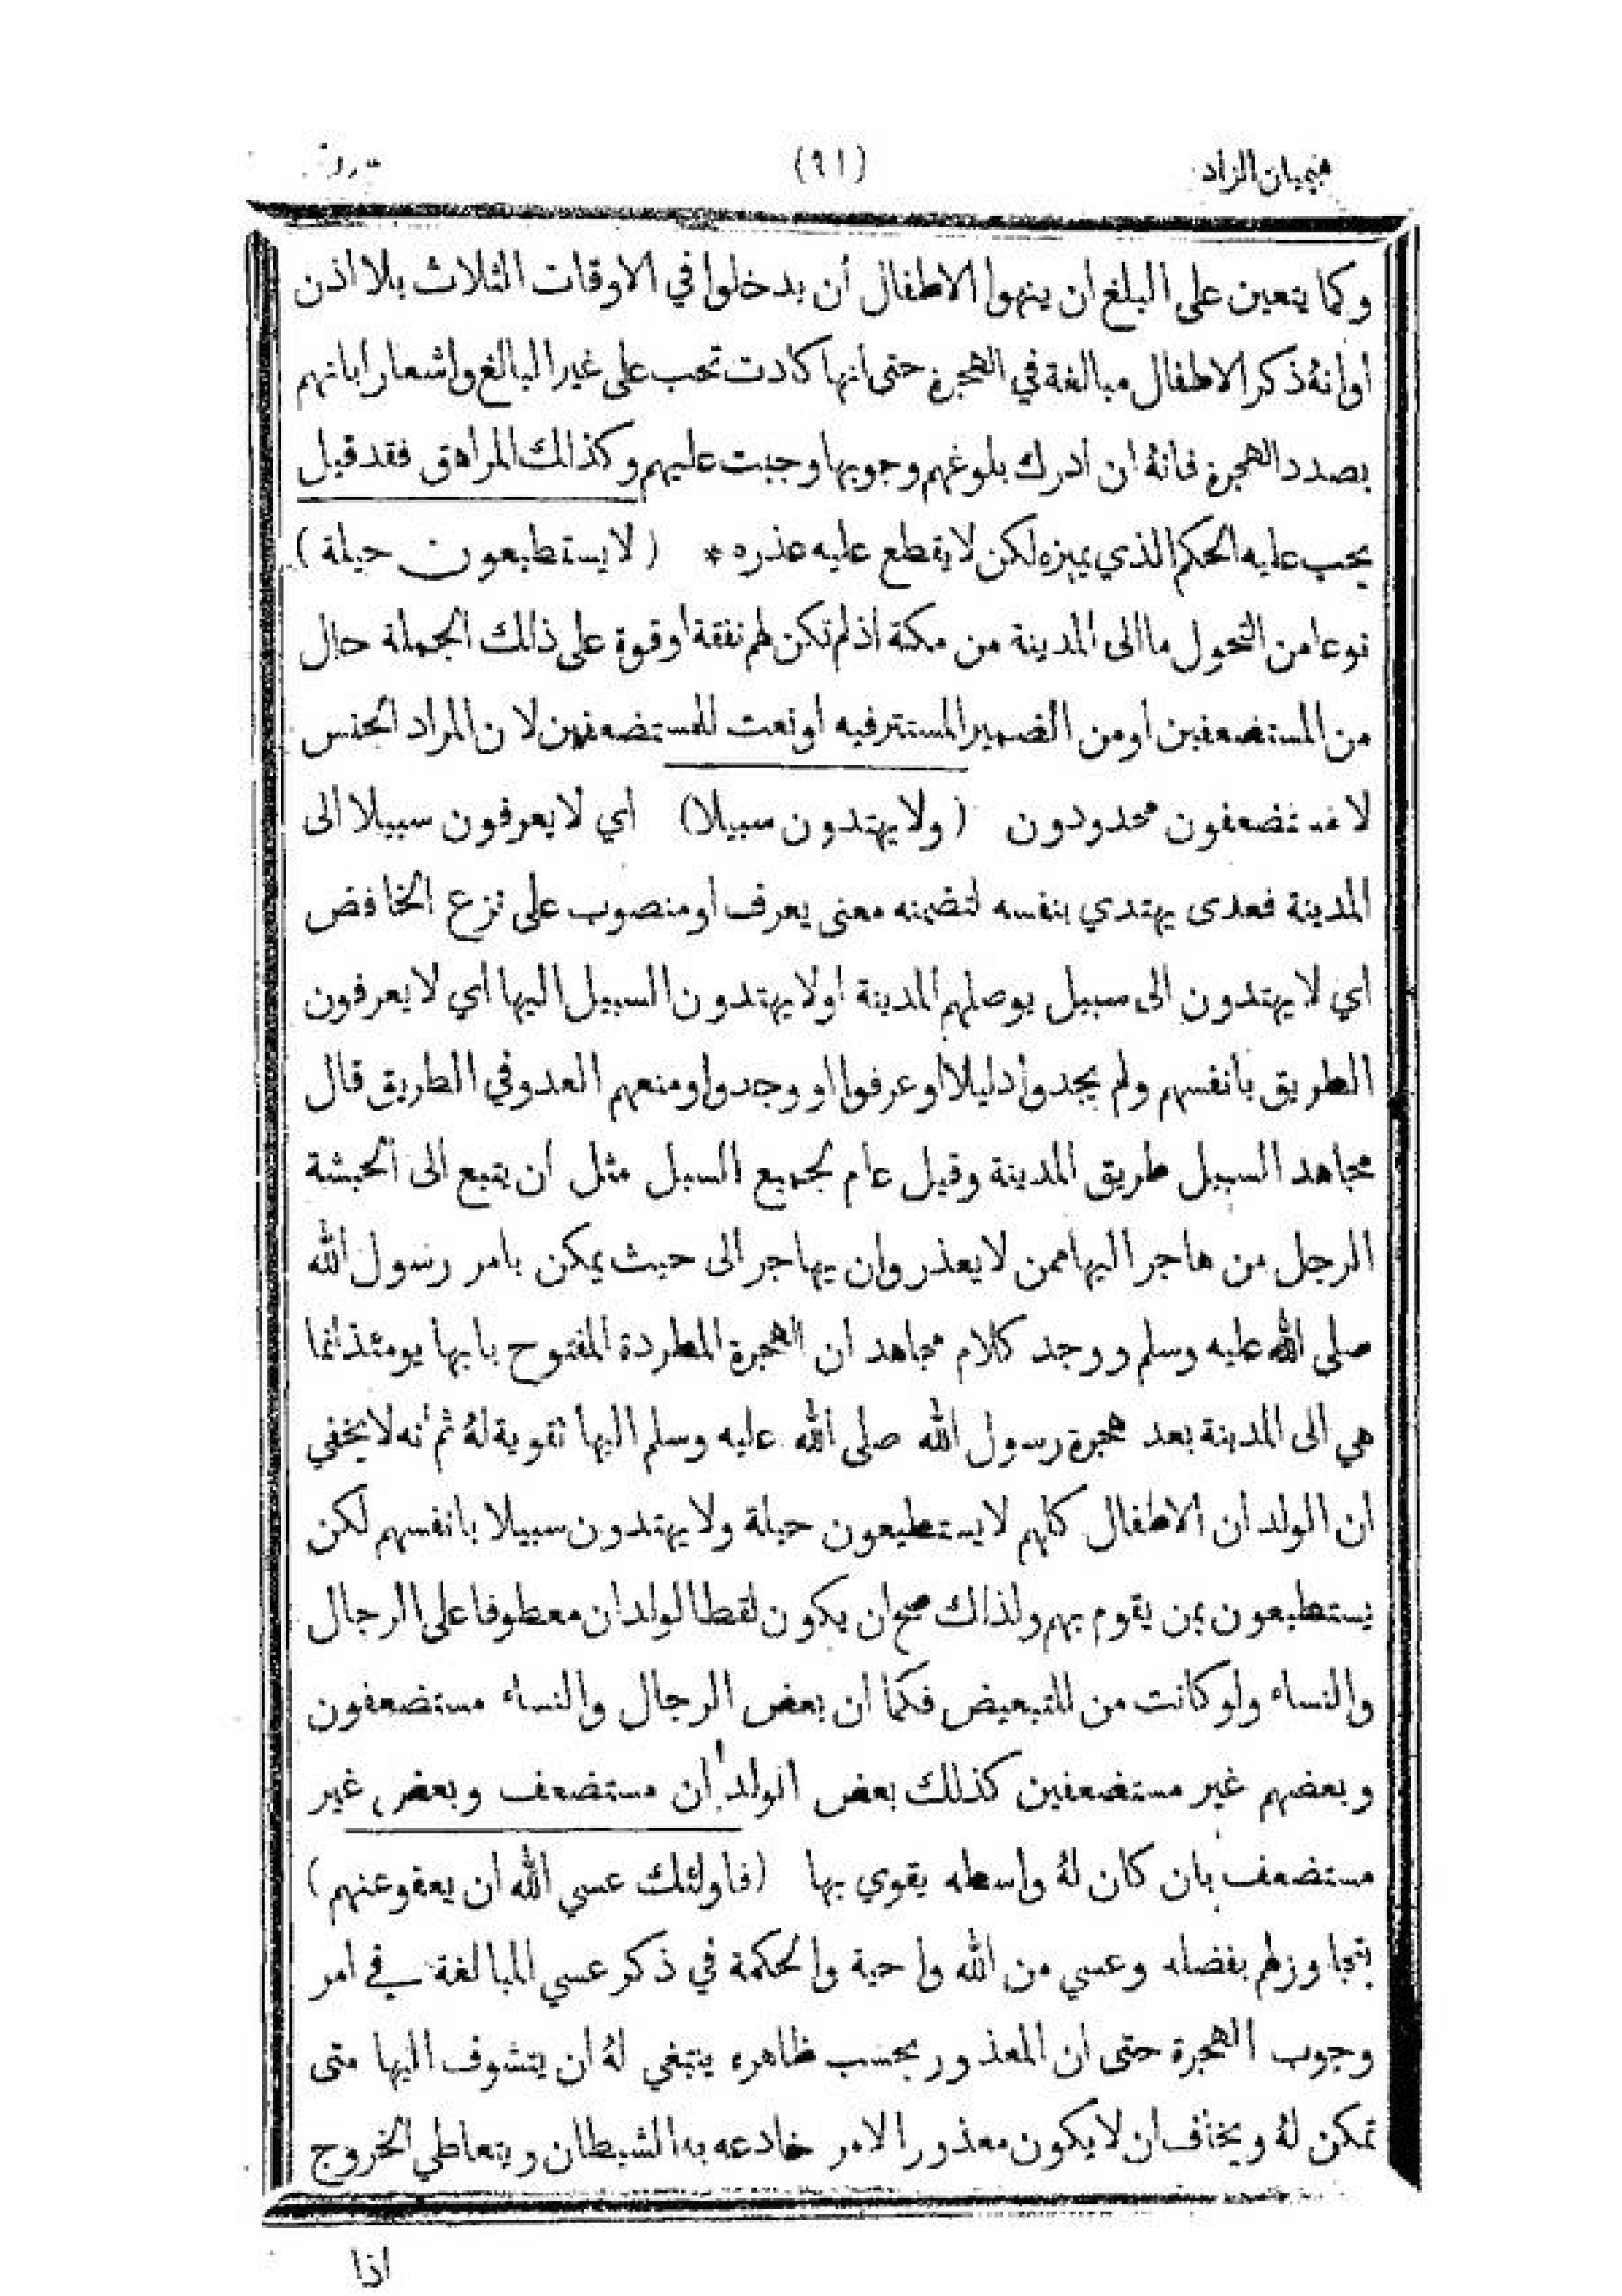 هيميان الزاد (٩١)
وكما يتعين على البلغ ان ينهوا الاطفال أن يدخلوا في الاوقات الثلاث بلا اذن
أو انهُ ذكر الاطفال مبالغة في الهجرة حتى انها كادت تجب على غير البالغ واشعار ابانهم
بصدد الهجرة فانهُ ان أدرك بلوغهم وجوبها وجبت عليهم وكذالك المراهق فقد قيل
يجب عليه الحكم الذي يميزه لكن لا يقطع عليه عذره * (لا يستطيعون حيلة)
نوعا من التحول ما الى المدينة من مكة اذ لم تكن لهم نفقة او قوة على ذلك الجملة حال
من المستضعفين او من الضمير المستتر فيه او نعت للمستضعفين لان المراد الجنس
لا مستضعفون محدودون (ولا يهتدون سبيلا) أي لا يعرفون سبيلا الى
المدينة فعدى يهتدي بنفسه لتضمنه معنى يعرف او منصوب على نزع الخافض
اي لا يهتدون الى سبيل يوصلهم المدينة او لا يهتدون السبيل اليها أي لا يعرفون
الطريق بانفسهم ولم يجدوا دليلا او عرفوا او وجدوا ومنعهم العدو في الطريق قال
مجاهد السبيل طريق المدينة وقيل عام لجميع السبل مثل ان يتبع الى الحبشة
الرجل من هاجر اليها ممن لا يعذر وان يهاجر الى حيث يمكن بامر رسول الله
صلى الله عليه وسلم ووجد كلام مجاهد ان الهجرة المطردة المفتوح بابها يومئذ انما
هي الى المدينة بعد هجرة رسول الله صلى الله عليه وسلم اليها تقوية لهُ ثم أنه لا يخفي
ان الولدان الاطفال كلهم لا يستطيعون حيلة ولا يهتدون سبيلا بانفسهم لكن
يستطيعون بمن يقوم بهم ولذاك صح ان يكون لقطا الولدان معطوفا على الرجال
والنساء ولو كانت من للتبعيض فكما ان بعض الرجال والنساء مستضعفون
وبعضهم غير مستضعفين كذلك بعض الولدان مستضعف وبعض غير
مستضعف بان كان لهُ واسطه يقوي بها (فاولئك عسي الله أن يعفو عنهم)
يتجاوز لهم بفضله وعسي من الله واحبة والحكمة في ذكر عسي المبالغة في امر
وجوب الهجرة حتى ان المعذور بحسب ظاهره ينبغي لهُ ان يتشوف اليها متى
تمكن لهُ ويخاف ان لا يكون معذورا لامر خادعه به الشيطان ويتعاطي الخروج
اذا